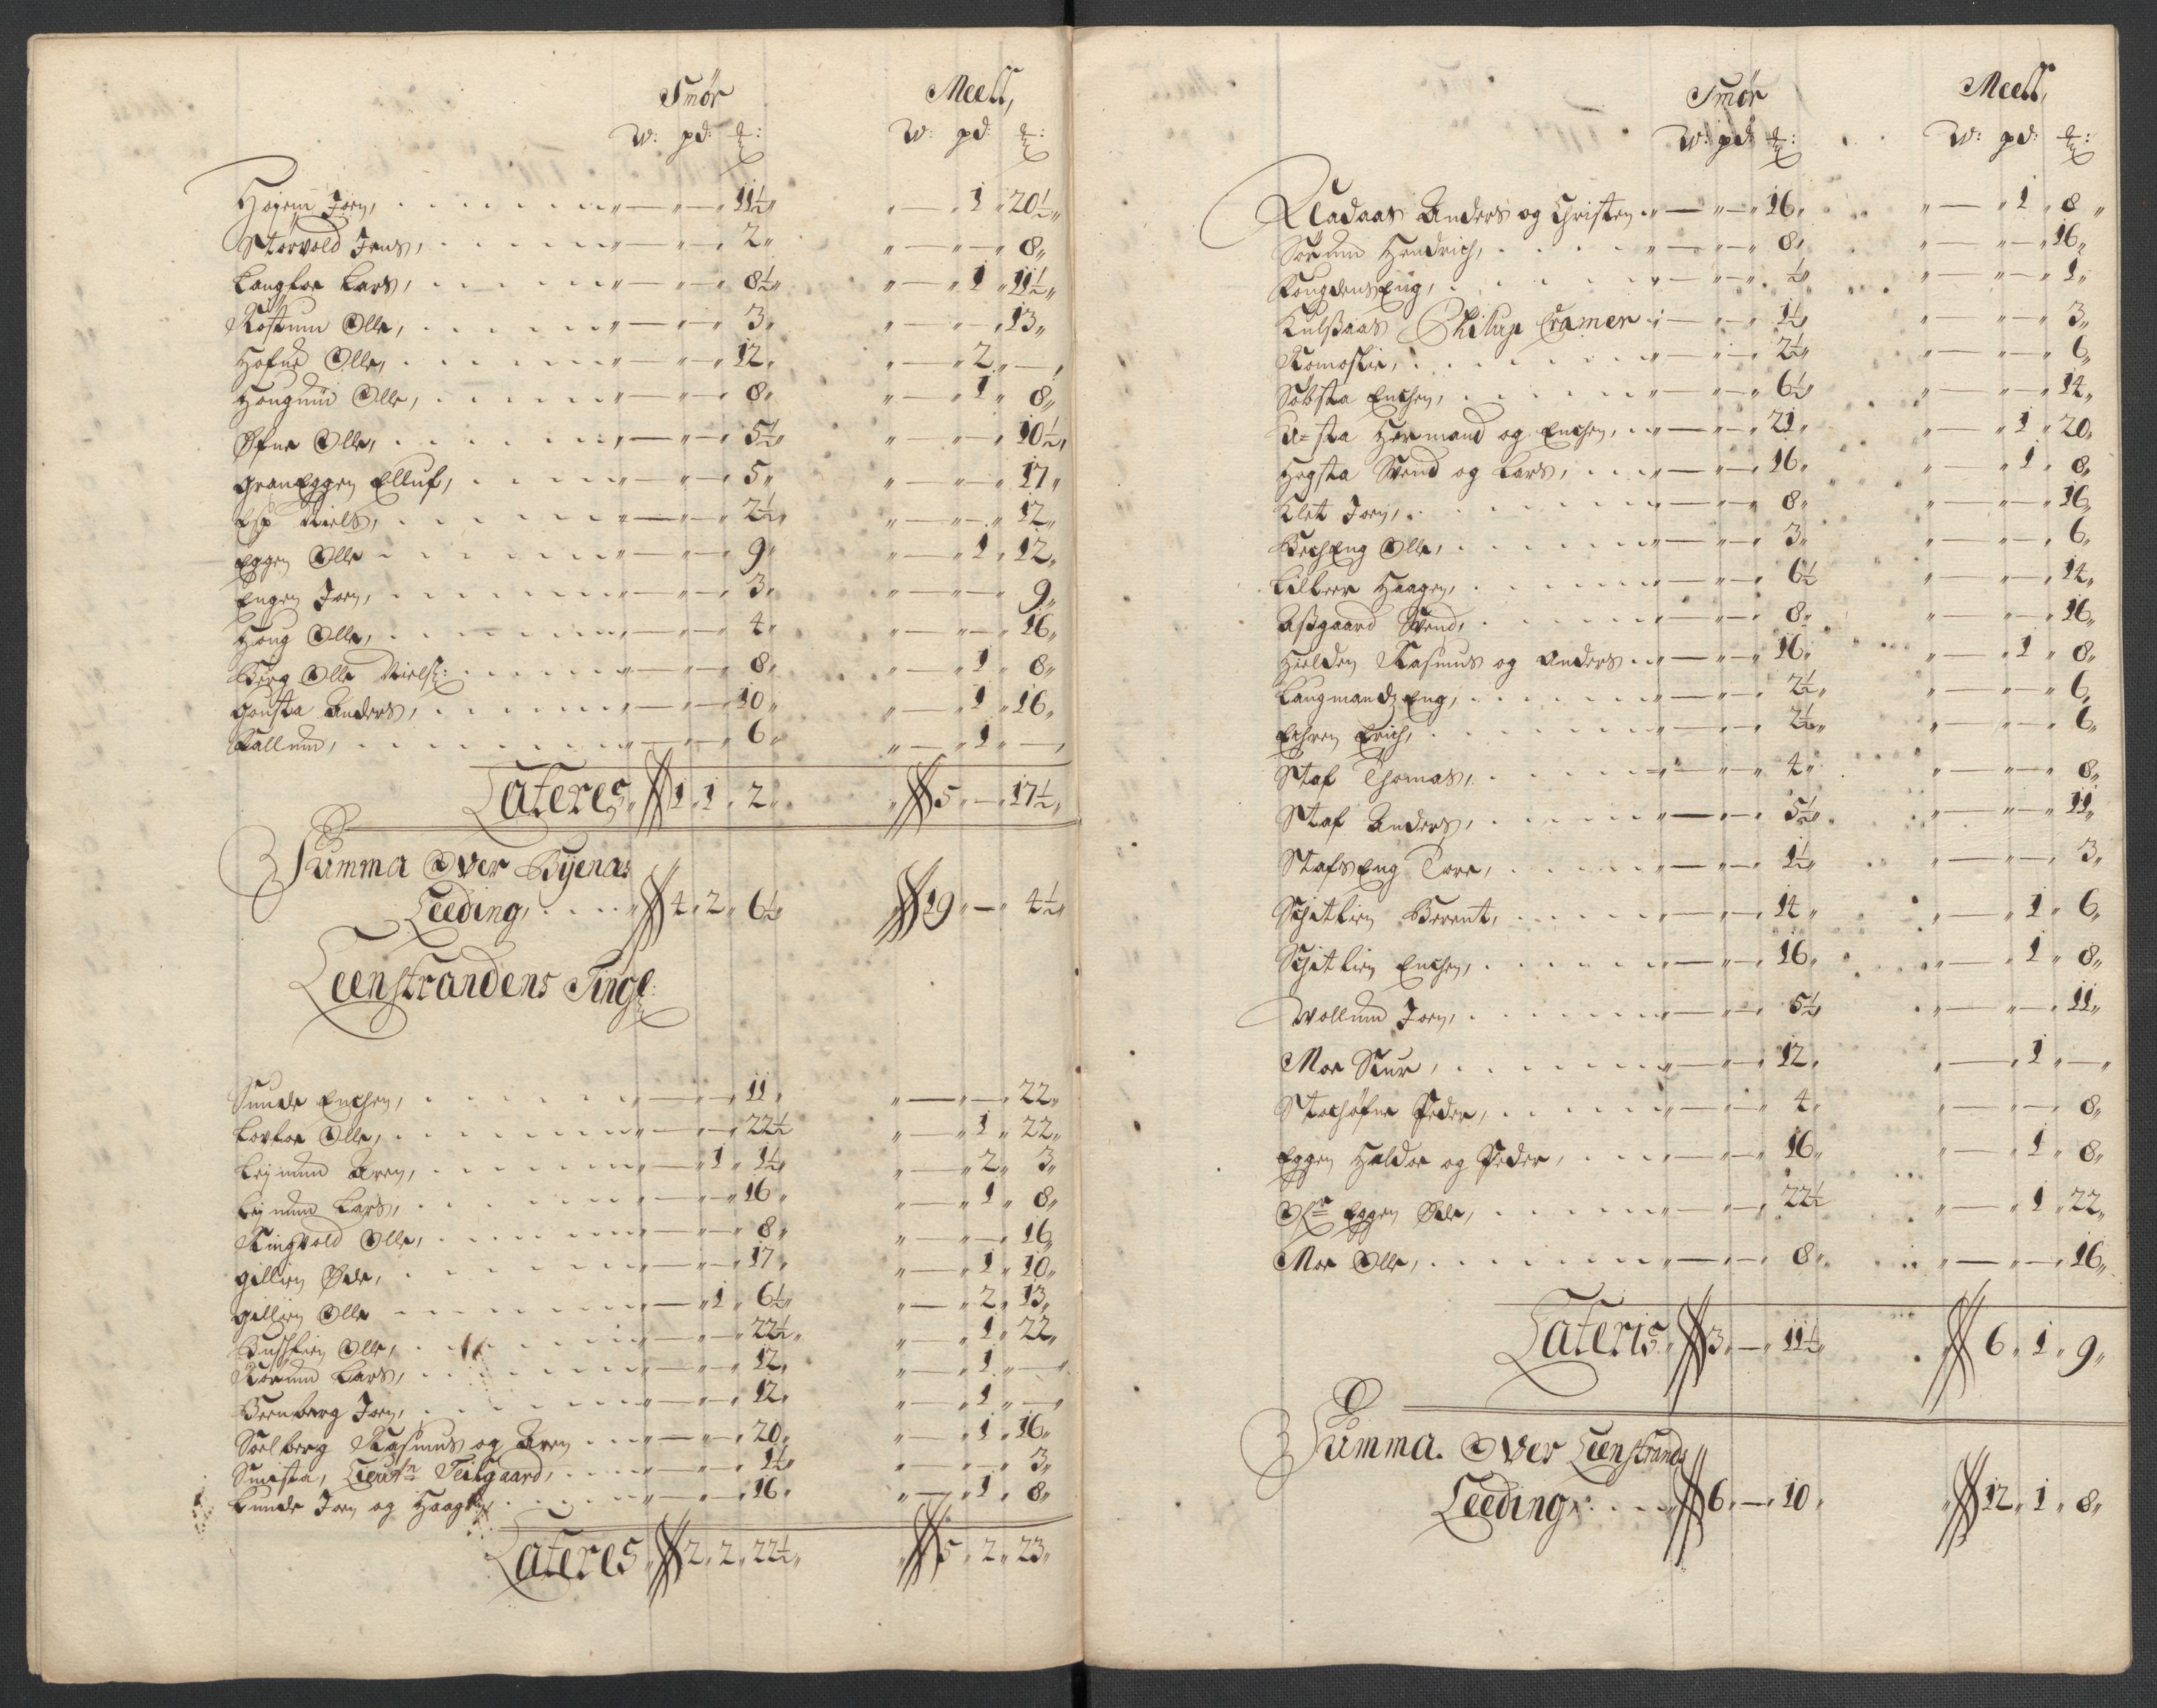 Smör Meell,
W: pd: ℔: W: pd: ℔:
Högem Joen, 11½ 1 20½
Storvold Jens, 2 8
Langloe Lars, 8½ 1 11½
Röstum Olle, 3 13
Hofne Olle, 12 2 —
Hougum Olle, 8 1 8
Öfne Olle, 5½ 10½
GranEggen Elluf, 5 17
Esp Niels, 2½ 12
Eggen Olle 9 1 12
Engen Joen, 3 9
Houg Olle, 4 16
Berg Olle Niels: 8 1 8
Gousta Anders, 10 1 16
Kallum, 6 1 —
Lateres 1 1 2 5 — 17½
Summa Over Byenes
Leeding, 4 2 6½ 19 — 4½
Leenstrandens Tingl:
Sunde Enchen, 11 22
Lovloe Olle, 22½ 1 22
Leinum Aren, 1 1½ 2 3
Leinum Lars, 16 1 8
Ringvold Olle, 8 16
Gillien Öde, 17 1 10
Gillien Olle 1 6½ 2 13
Buschlien Olle, 22½ 1 22
Rörum Lars, 12 1 —
Beenberg Joen, 12 1 —
Soelberg Rasmus og Aren 20 1 16
Smista, Lieutn Teilgaard, 1½ 3
Lunde Joen og Haagen 16 1 8
Lateres 2 2 22½ 5 2 23
Smör Meell,
W: pd: ℔: W: pd: ℔:
Qladaas Anders og Christen 16 1 8
Sörum Hendrich, 8 16
KongdensEng, ½ 1
Kulsaas Philip Cramer 1½ 3
Romoslie, 2½ 6
Söbsta Enchen, 6½ 14
U=sta Hermand og Enchen, 21 1 20
Hegsta Svend og Lars, 16 1 8
Klet Joen, 8 16
BechEng Olle, 3 6
Lilleer Haagen, 6½ 14
Asgaard Svend, 8 16
Hielden Rasmus og Anders 16 1 8
LaugmandzEng, 2½ 6
Echren Erich, 2½ 6
Staf Thomas, 4 8
Staf Anders, 5½ 11
StafsEng Tore, 1½ 3
Schitlien Berent, 14 1 6
Schitlien Enchen, 16 1 8
Wollum Joen, 5½ 11
Moe Siur, 12 1 —
Stochöfne Peder, 4 8
Eggen Haldor og Peder, 16 1 8
Ofr Eggen Öde, 22½ 1 22
Moe Olle, 8 16
Lateris 3 — 11½ 6 1 9
Summa Over Leenstrands
Leeding, 6 — 10 12 1 8